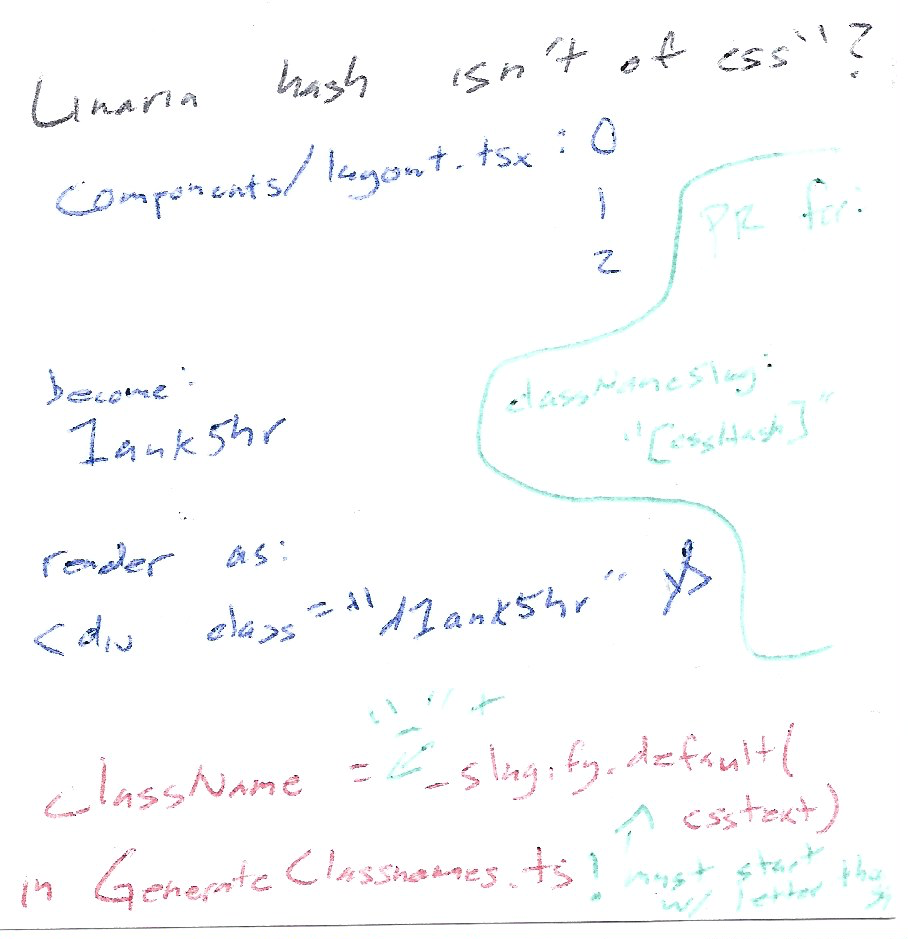 Linaria hash isn't of css``?
components/layout.tsx : 0
1
2
PR for:
classNameSlug:
"[cssHash]"
become:
1ank5hr
render as:
<div class="1ank5hr" />
" " +
className = _slugify.default(
csstext)
in GenerateClassnames.ts!
must start
w/ letter tho